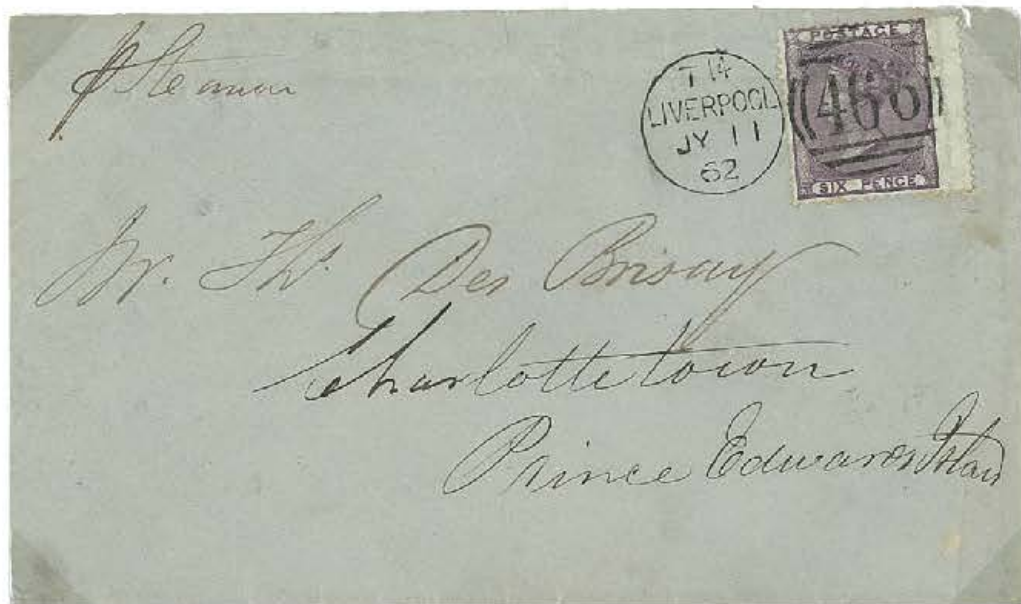 p Steamer
POSTAGE
T 14
LIVERPOOL
JY 11
62
466
SIX PENCE
Mr. Thos. Des Brisay
Charlottetown
Prince Edward Island